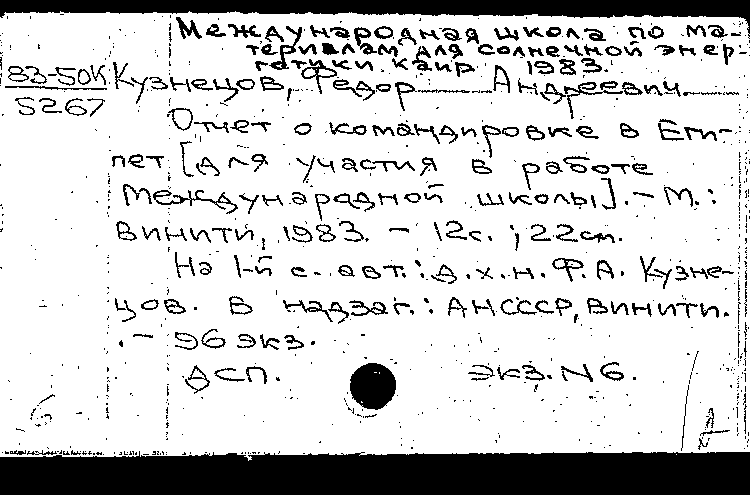 Международная школа по ма-
териалам для солнечной энер-
гетики Каир 1983.
83-50К Кузнецов, Федор Андреевич.
5267
Отчет о командировке в Еги-
пет [для участия в работе
Международной школы]. - М.:
ВИНИТИ, 1983. - 12с.; 22см.
На 1-й с. авт.: д.х.н. Ф.А. Кузне-
цов. В надзаг.: АН СССР, ВИНИТИ.
. - 96 экз.
ДСП. Экз. N6.
6